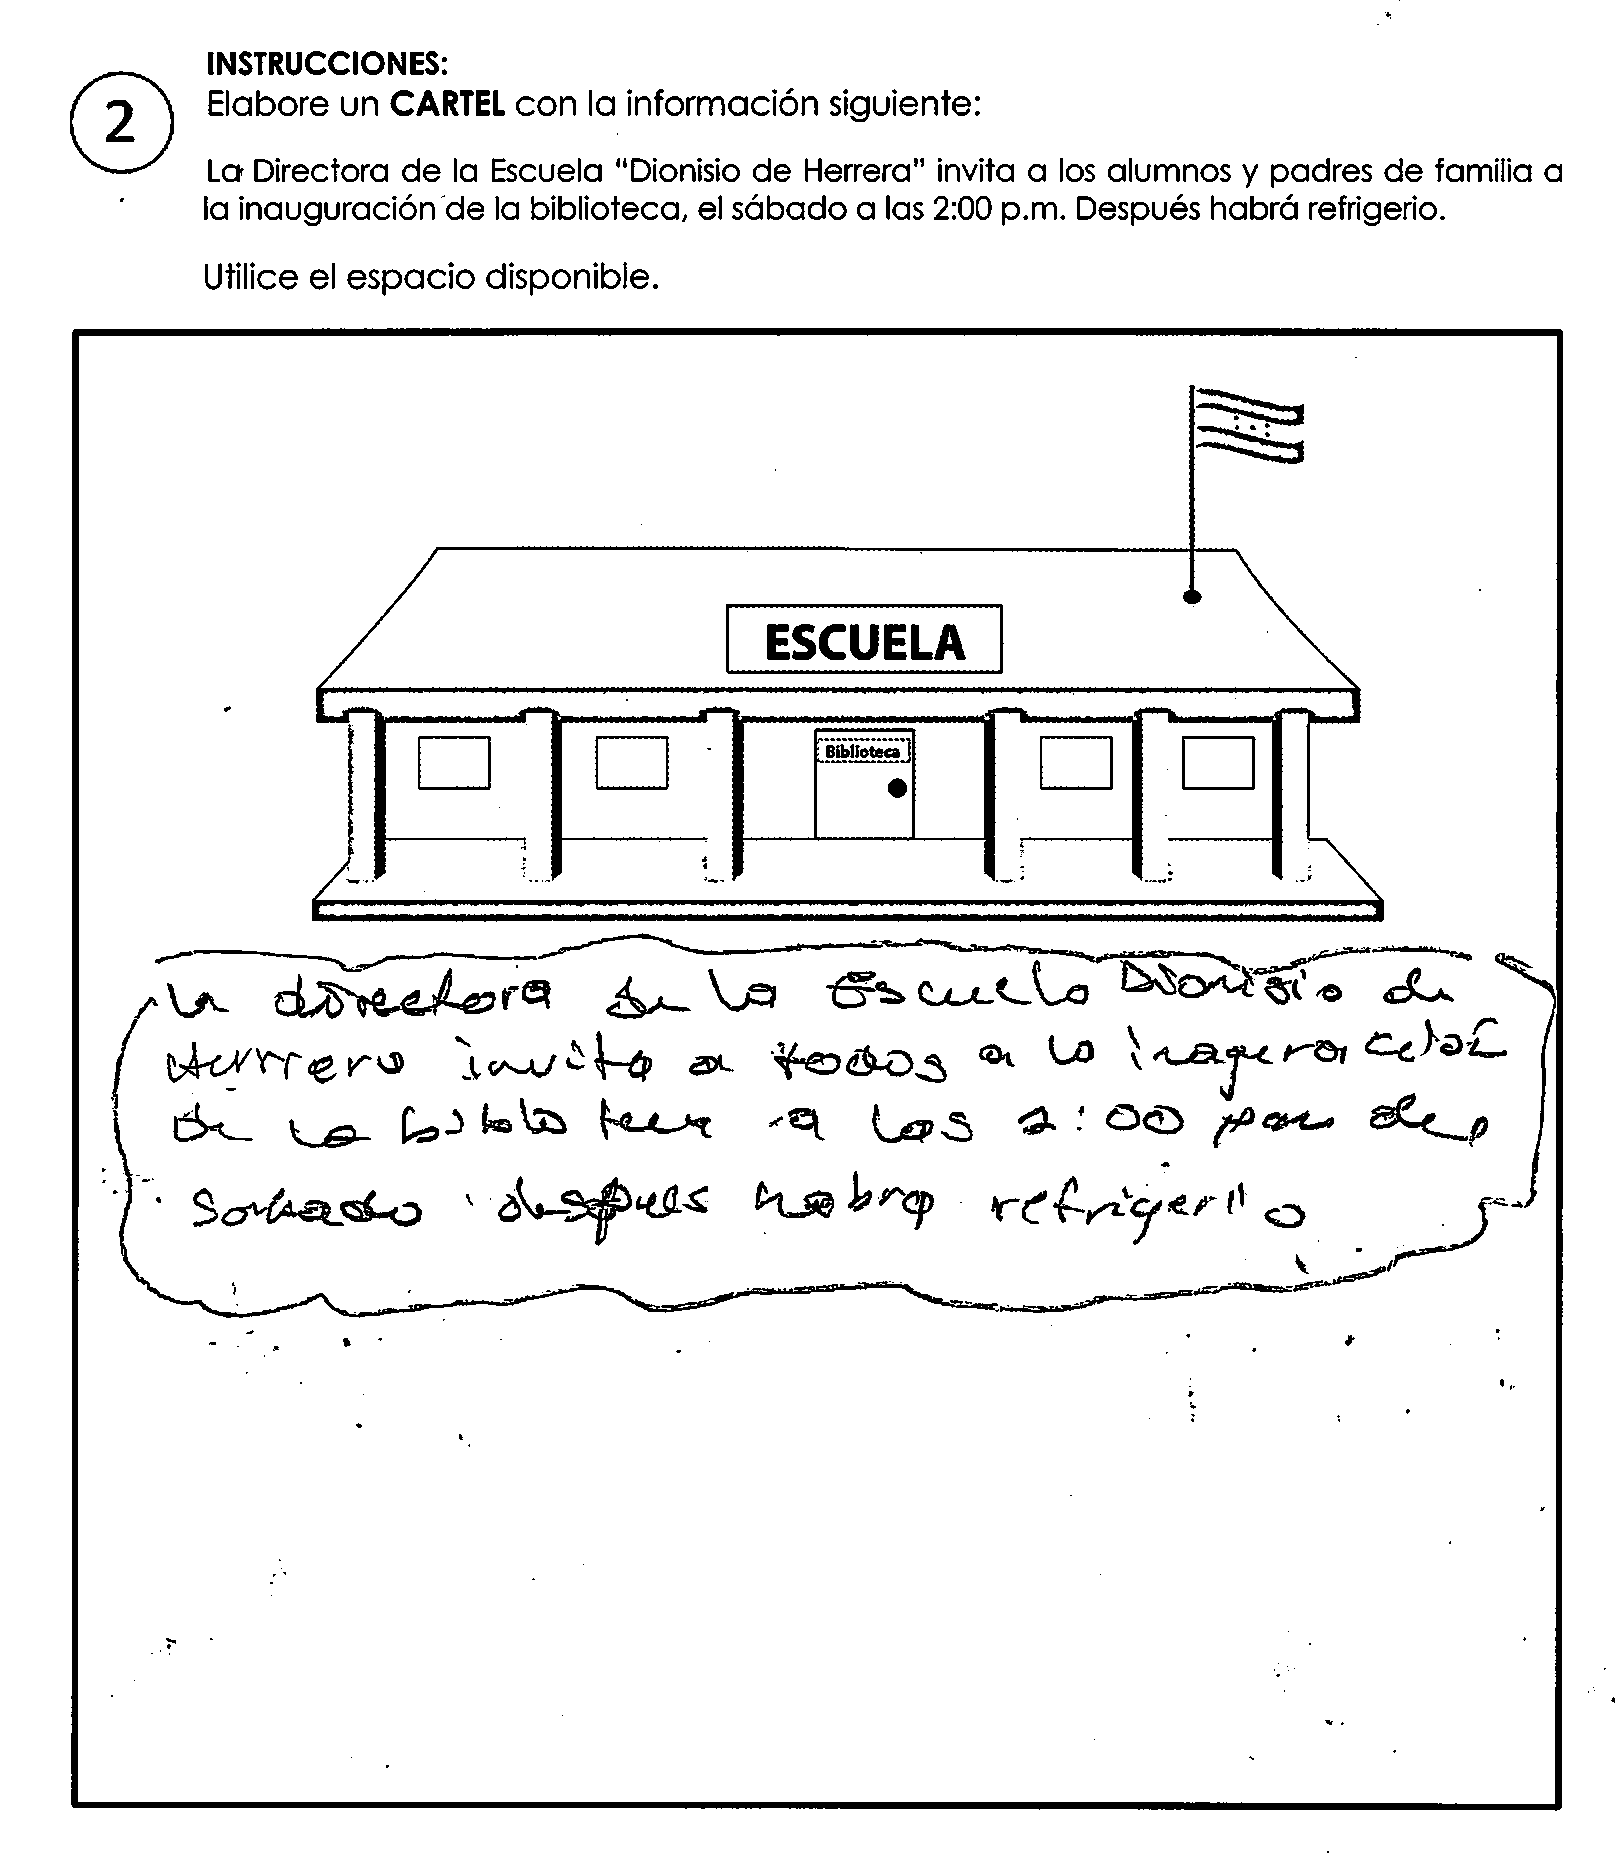 INSTRUCCIONES:
2
Elabore un CARTEL con la información siguiente:
La Directora de la Escuela "Dionisio de Herrera" invita a los alumnos y padres de familia a
la inauguración de la biblioteca, el sábado a las 2:00 p.m. Después habrá refrigerio.
Utilice el espacio disponible.
ESCUELA
Biblioteca
la directora de la Escuela Dionisio de
Herrera invita a todos a la
de la biblioteca a las 2:00 pm
sabado despues habra refrigerio